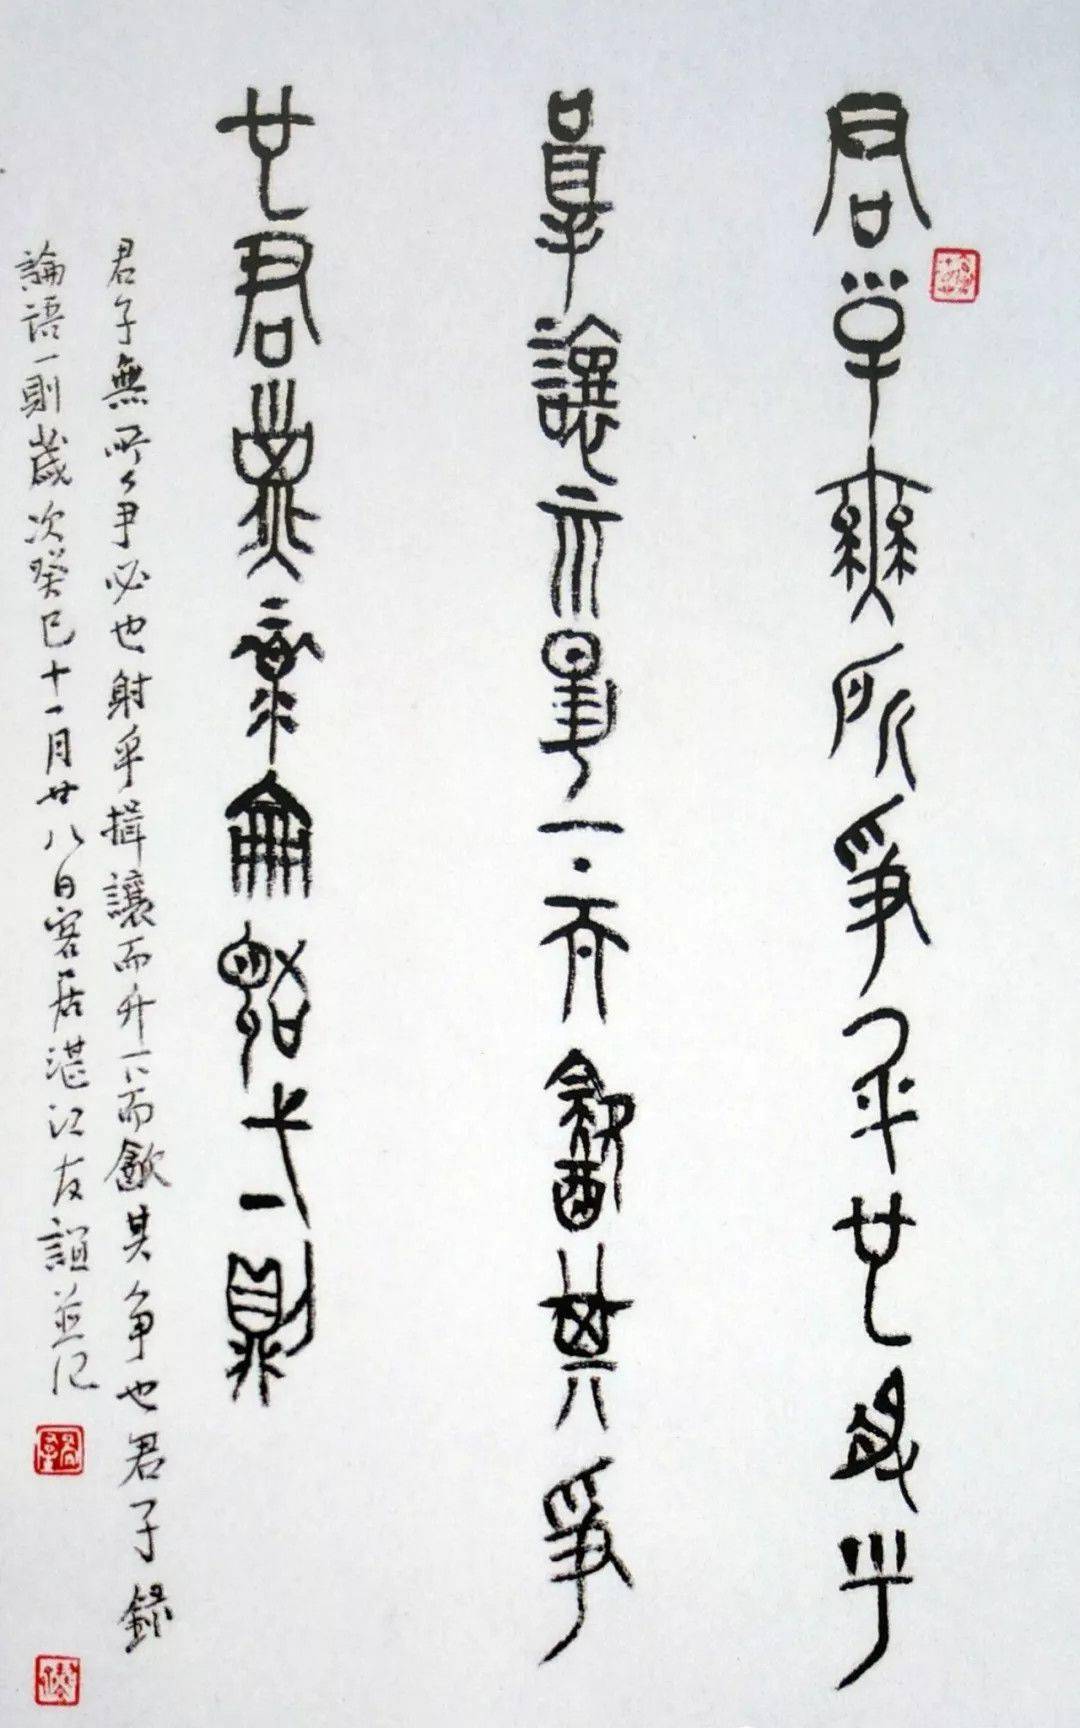 君子無所爭必也射乎
揖讓而升下而㱃其爭
也君子錄論語一則
君子無所爭必也射乎揖讓而升下而㱃其争也君子錄
論語一則歲次癸巳十一月廿八日客居湛江友誼並记